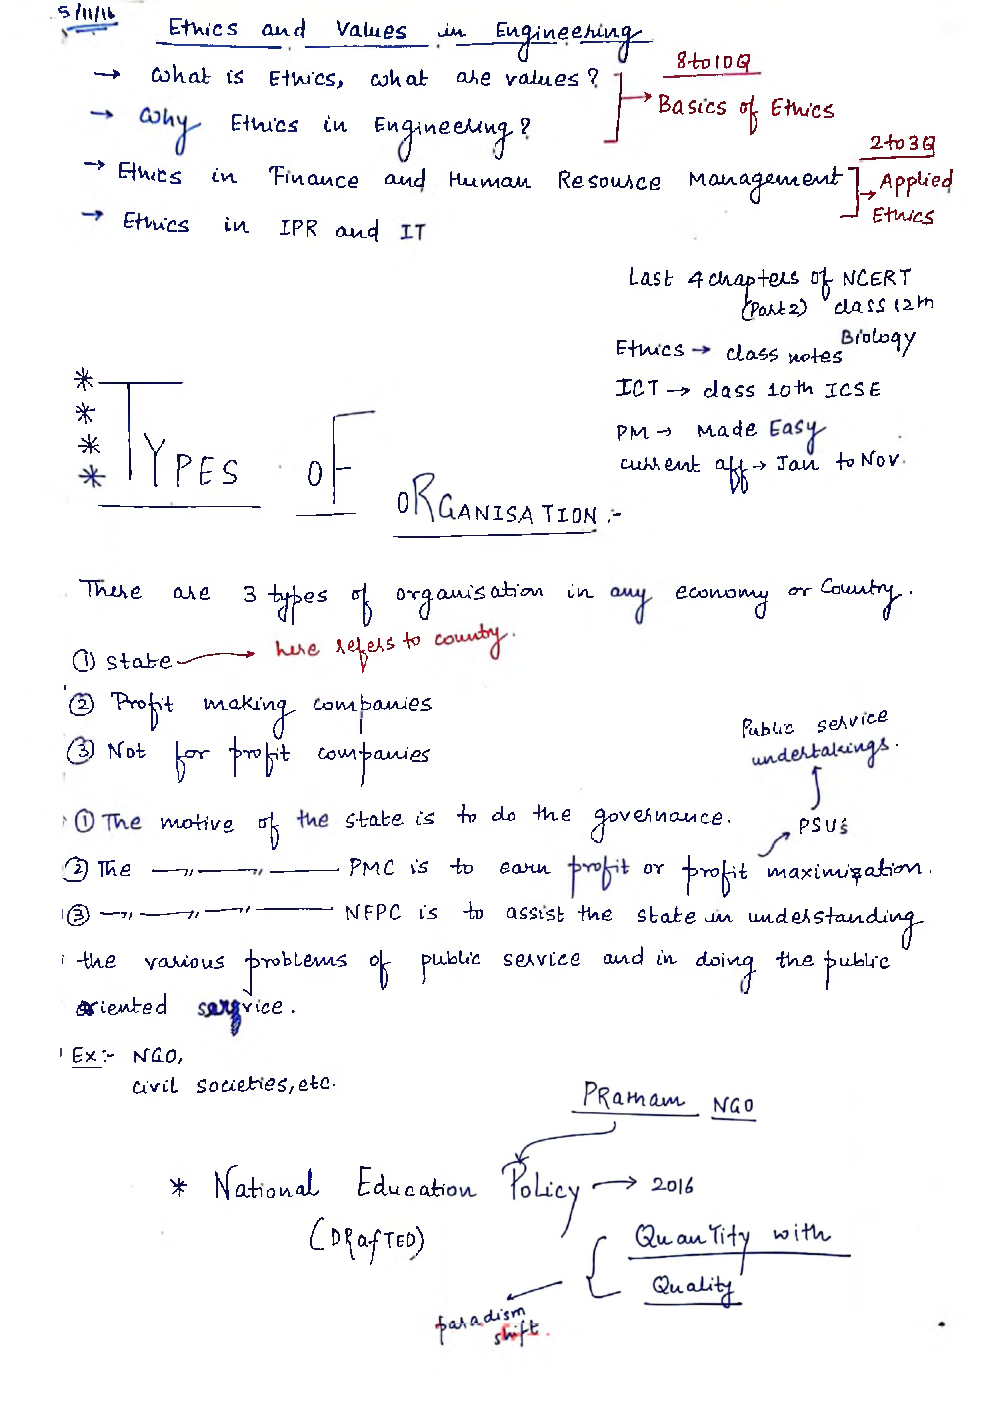 5/11/16
Ethics and Values in Engineering
8 to 10Q
→ What is Ethics, what are values?
→ Basics of Ethics
→ Why Ethics in Engineering?
2 to 3Q
→ Ethics in Finance and Human Resource Management
→ Applied Ethics
→ Ethics in IPR and IT
Last 4 chapters of NCERT
(Part 2) class 12th
Biology
Ethics → class notes
ICT → class 10th ICSE
PM → Made Easy
current aff → Jan to Nov.
* * * *
TYPES OF ORGANISATION :-
There are 3 types of organisation in any economy or Country.
① State → here refers to country.
② Profit making companies
③ Not for profit companies
Public service
undertakings.
① The motive of the state is to do the governance.
PSU's
② The —〃—〃— PMC is to earn profit or profit maximization.
③ —〃—〃—〃— NFPC is to assist the state in understanding
the various problems of public service and in doing the public
oriented service.
Ex:- NGO,
civil societies, etc.
PRatham NGO
* National Education Policy → 2016
(DRafTED)
Quantity with
Quality
paradism
shift.